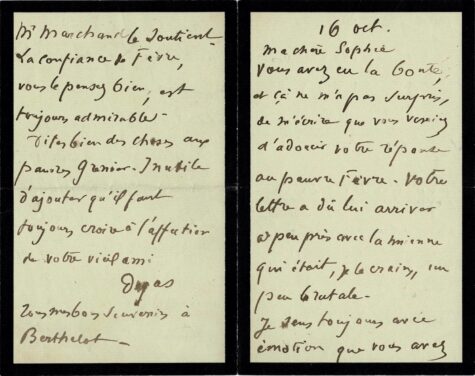 16 oct.
Ma chère Sophie
Vous avez eu la bonté,
et çà ne m'a pas surpris,
de m'écrire que vous veniez
d'adoucir votre réponse
au pauvre Fèvre - Votre
lettre a dû lui arriver
à peu près avec la mienne
qui était, je le crains, un
peu brutale -
Je sens toujours avec
émotion que vous avez
Mr Marchand le soutient
La confiance de Fèvre,
vous le pensez bien, est
toujours admirable -
Dites bien des choses aux
pauvres Grenier - Inutile
d'ajouter qu'il faut
toujours croire à l'affection
de votre vieil ami
Degas
Tous mes bons souvenirs à
Berthelot -